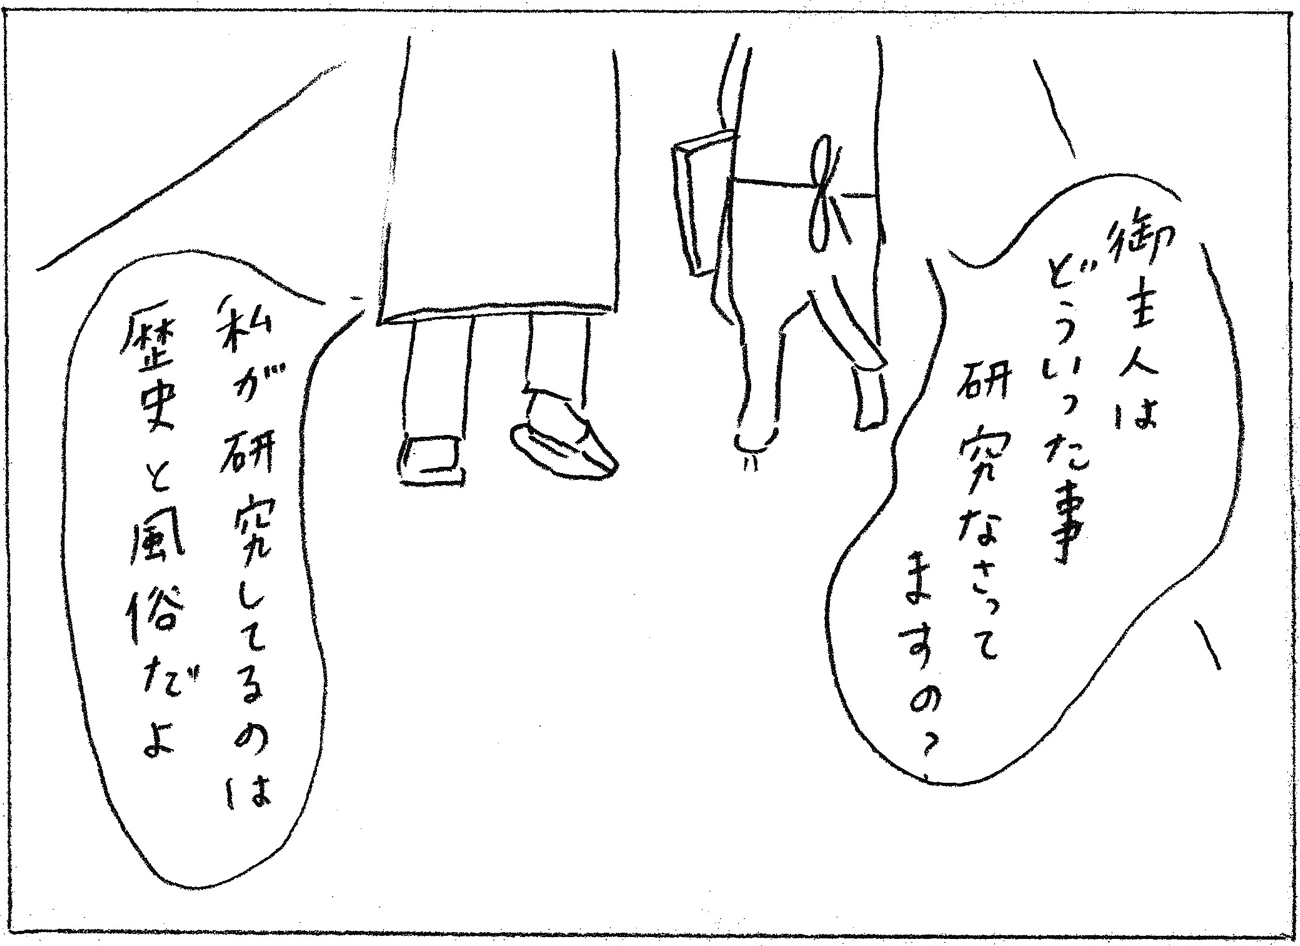 御主人は
どういった事
研究なさって
ますの?
私が研究してるのは
歴史と風俗だよ